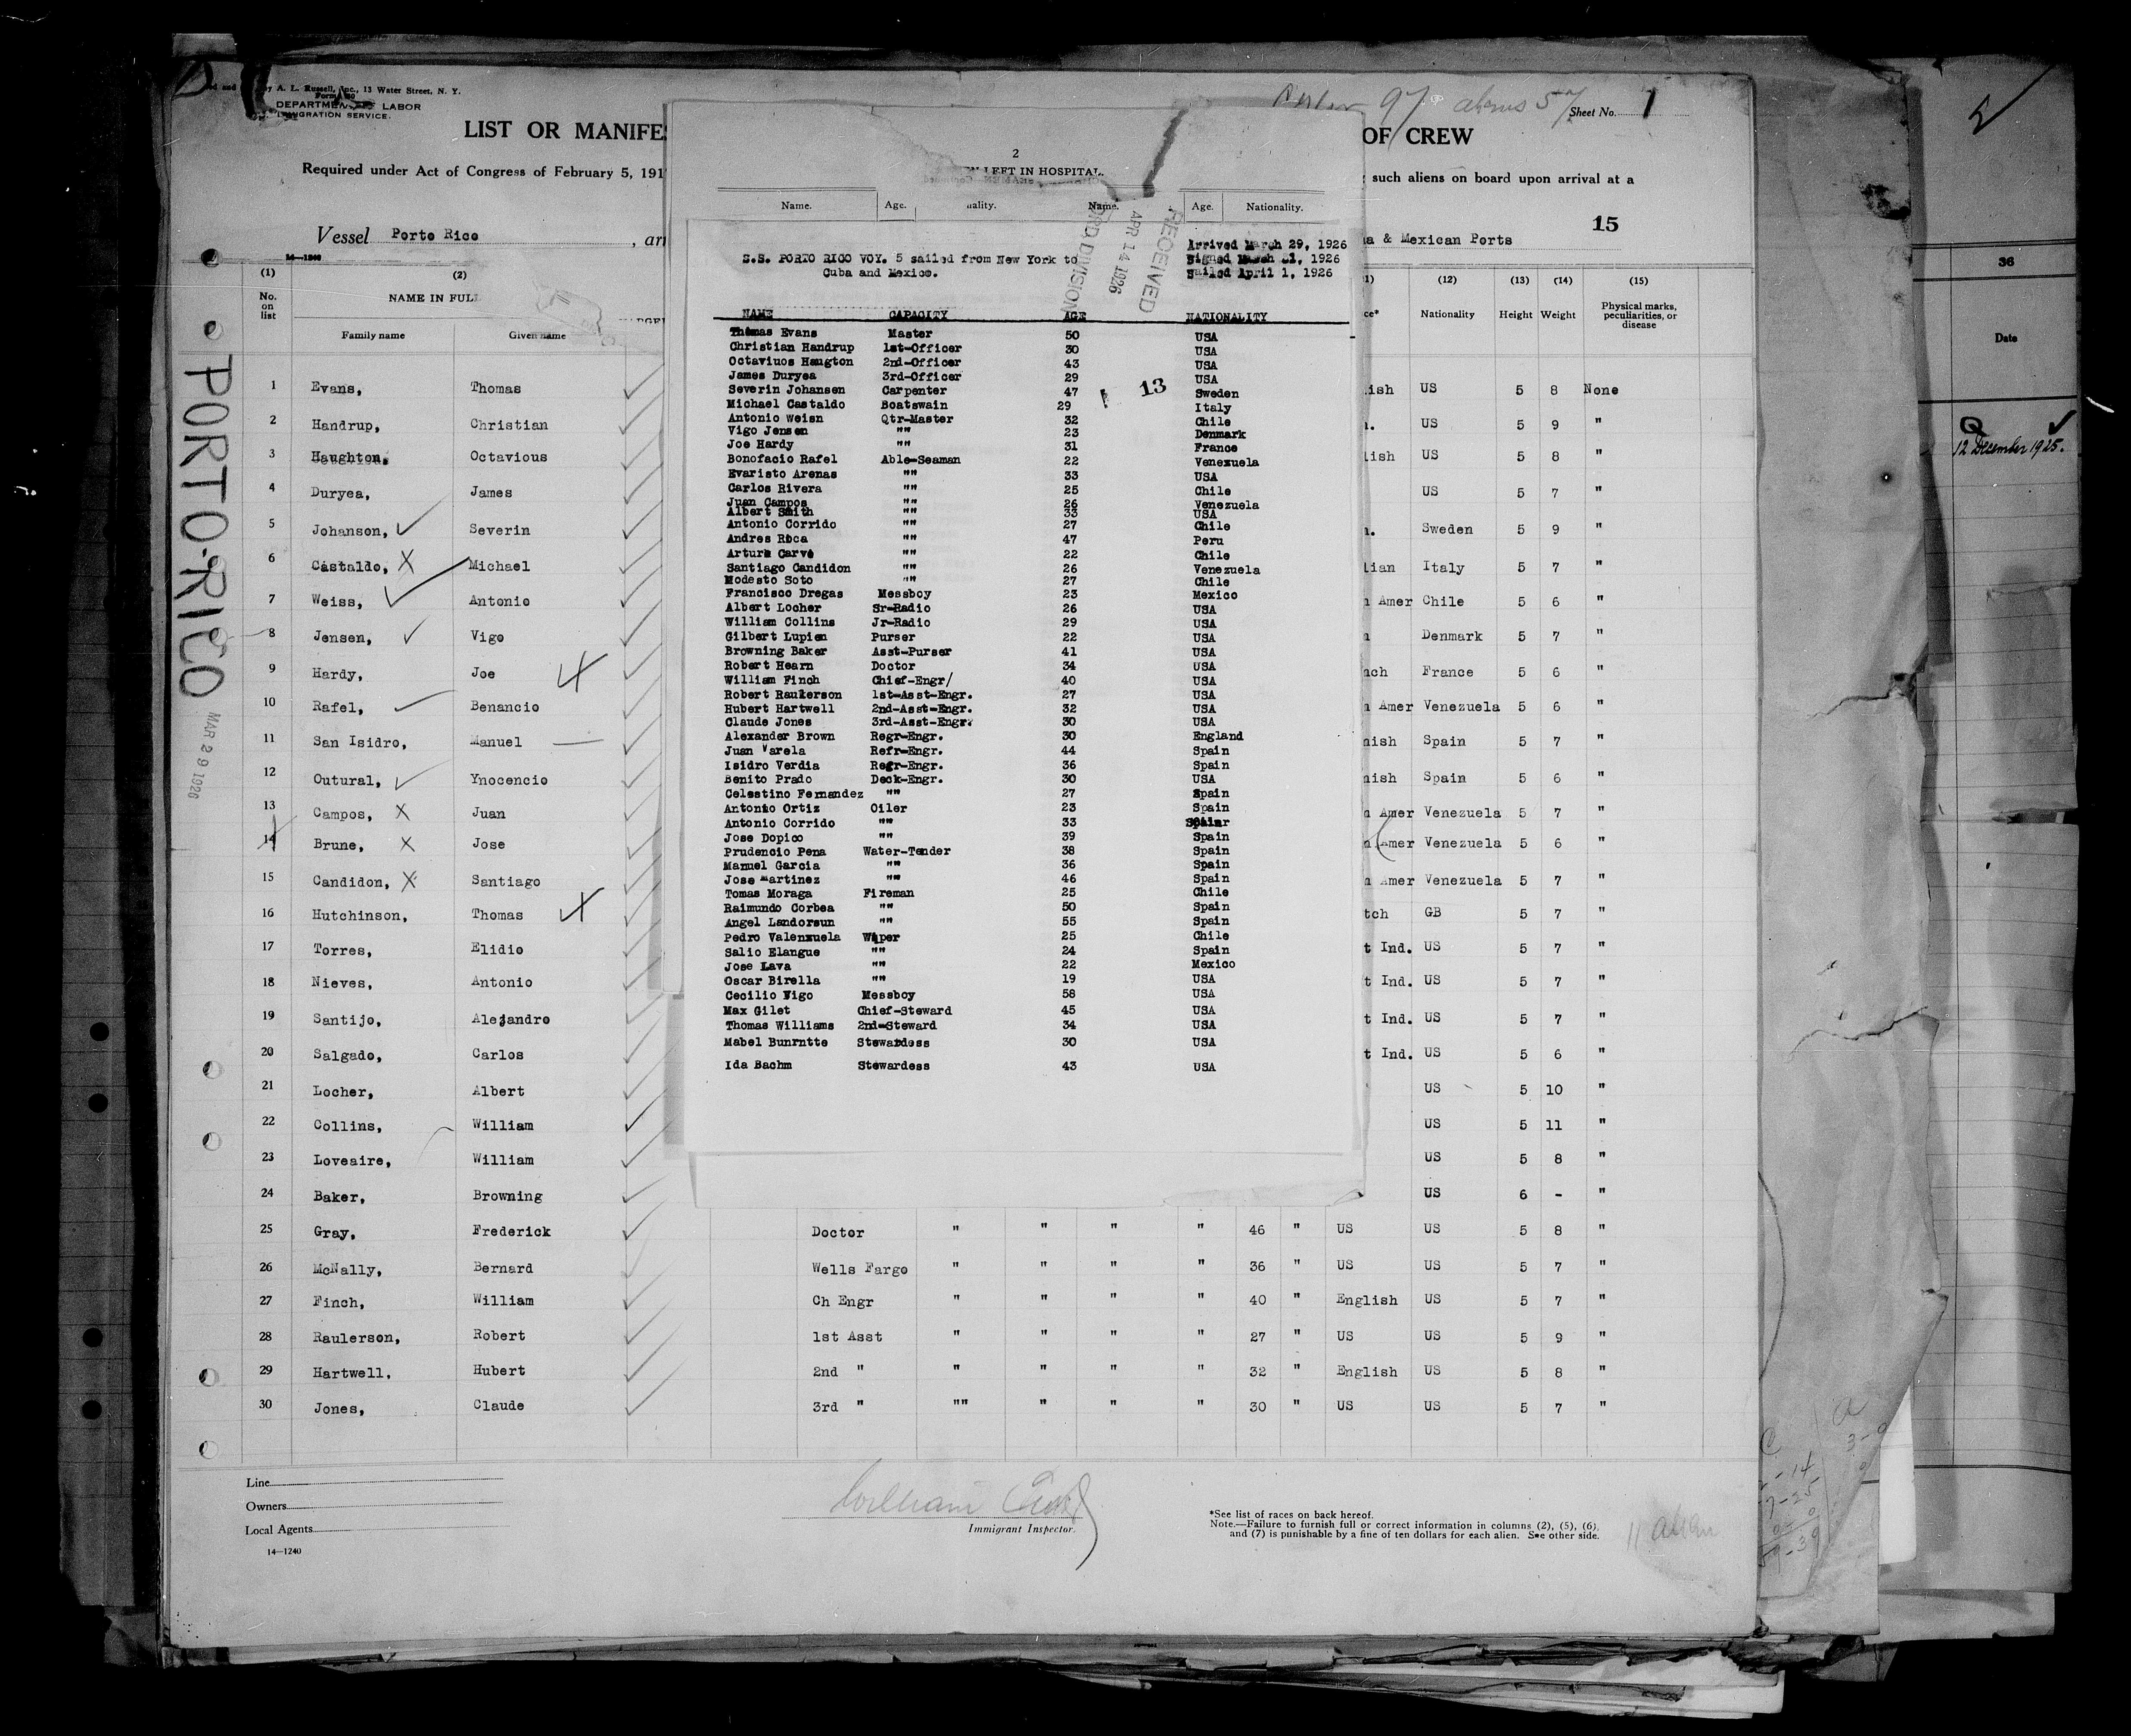 A. L. Russell, Inc., 13 Water Street, N. Y.
DEPARTMENT OF LABOR
IMMIGRATION SERVICE.
97 aliens 57
Sheet No. 1
LIST OR MANIFE
OF CREW
Required under Act of Congress of February 5, 191
such aliens on board upon arrival at a
15
Vessel Porto Rico , arr
a & Mexican Ports
14—1240
PORTO-RICO
MAR 29 1926
(1) (2)
No. on list
NAME IN FULL
Family name Given name
(12) (13) (14) (15)
Nationality Height Weight Physical marks, peculiarities, or disease
2
LEFT IN HOSPITAL.
Name. Age. ality. Name. Age. Nationality.
RECEIVED
APR 14 1926
DIVISION
Arrived March 29, 1926
S.S. PORTO RICO VOY. 5 sailed from New York to Signed March 31, 1926
Cuba and Mexico. Sailed April 1, 1926
13
NAME CAPACITY AGE NATIONALITY
Thomas Evans Master 50 USA
Christian Handrup 1st-Officer 30 USA
Octaviuos Haugton 2nd-Officer 43 USA
James Duryea 3rd-Officer 29 USA
Severin Johansen Carpenter 47 Sweden
Michael Castaldo Boatswain 29 Italy
Antonio Weisn Qtr-Master 32 Chile
Vigo Jensen "" 23 Denmark
Joe Hardy "" 31 France
Bonofacio Rafel Able-Seaman 22 Venezuela
Evaristo Arenas "" 33 USA
Carlos Rivera "" 25 Chile
Juan Campos "" 26 Venezuela
Albert Smith "" 33 USA
Antonio Corrido "" 27 Chile
Andres Roca "" 47 Peru
Arture Carve "" 22 Chile
Santiago Candidon "" 26 Venezuela
Modesto Soto "" 27 Chile
Francisco Dregas Messboy 23 Mexico
Albert Locher Sr-Radio 26 USA
William Collins Jr-Radio 29 USA
Gilbert Lupien Purser 22 USA
Browning Baker Asst-Purser 41 USA
Robert Hearn Doctor 34 USA
William Finch Chief-Engr/ 40 USA
Robert Raulerson 1st-Asst-Engr. 27 USA
Hubert Hartwell 2nd-Asst-Engr. 32 USA
Claude Jones 3rd-Asst-Engr. 30 USA
Alexander Brown Regr-Engr. 30 England
Juan Varela Refr-Engr. 44 Spain
Isidro Verdia Regr-Engr. 36 Spain
Benito Prado Deck-Engr. 30 USA
Celestino Fernandez "" 27 Spain
Antonio Ortiz Oiler 23 Spain
Antonio Corrido "" 33
Jose Dopico "" 39 Spain
Prudencio Pena Water-Tender 38 Spain
Manuel Garcia "" 36 Spain
Jose Martinez "" 46 Spain
Tomas Moraga Fireman 25 Chile
Raimundo Corbea "" 50 Spain
Angel Landorsun "" 55 Spain
Pedro Valenzuela Wiper 25 Chile
Salio Elangue "" 24 Spain
Jose Lava "" 22 Mexico
Oscar Birella "" 19 USA
Cecilio Vigo Messboy 58 USA
Max Gilet Chief-Steward 45 USA
Thomas Williams 2nd-Steward 34 USA
Mabel Bunrntte Stewardess 30 USA
Ida Bachm Stewardess 43 USA
1 Evans, Thomas ish US 5 8 None
2 Handrup, Christian US 5 9 "
3 Haughton, Octavious lish US 5 8 "
4 Duryea, James US 5 7 "
5 Johanson, Severin Sweden 5 9 "
6 Castaldo, Michael lian Italy 5 7 "
7 Weiss, Antonio Amer Chile 5 6 "
8 Jensen, Vigo Denmark 5 7 "
9 Hardy, Joe nch France 5 6 "
10 Rafel, Benancio Amer Venezuela 5 6 "
11 San Isidro, Manuel nish Spain 5 7 "
12 Outural, Ynocencio nish Spain 5 6 "
13 Campos, Juan Amer Venezuela 5 7 "
14 Brune, Jose Amer Venezuela 5 6 "
15 Candidon, Santiago Amer Venezuela 5 7 "
16 Hutchinson, Thomas tch GB 5 7 "
17 Torres, Elidio t Ind. US 5 7 "
18 Nieves, Antonio t Ind. US 5 7 "
19 Santijo, Alejandro t Ind. US 5 7 "
20 Salgado, Carlos t Ind. US 5 6 "
21 Locher, Albert US 5 10 "
22 Collins, William US 5 11 "
23 Loveaire, William US 5 8 "
24 Baker, Browning US 6 - "
25 Gray, Frederick Doctor " " " " 46 " US US 5 8 "
26 McNally, Bernard Wells Fargo " " " " 36 " US US 5 7 "
27 Finch, William Ch Engr " " " " 40 " English US 5 7 "
28 Raulerson, Robert 1st Asst " " " " 27 " US US 5 9 "
29 Hartwell, Hubert 2nd " " " " " 32 " English US 5 8 "
30 Jones, Claude 3rd " "" " " " 30 " US US 5 7 "
Line
Owners
Local Agents
14—1240
William
Immigrant Inspector.
*See list of races on back hereof.
Note.—Failure to furnish full or correct information in columns (2), (5), (6), and (7) is punishable by a fine of ten dollars for each alien. See other side.
11 alien
36
Date
12 December 1925.